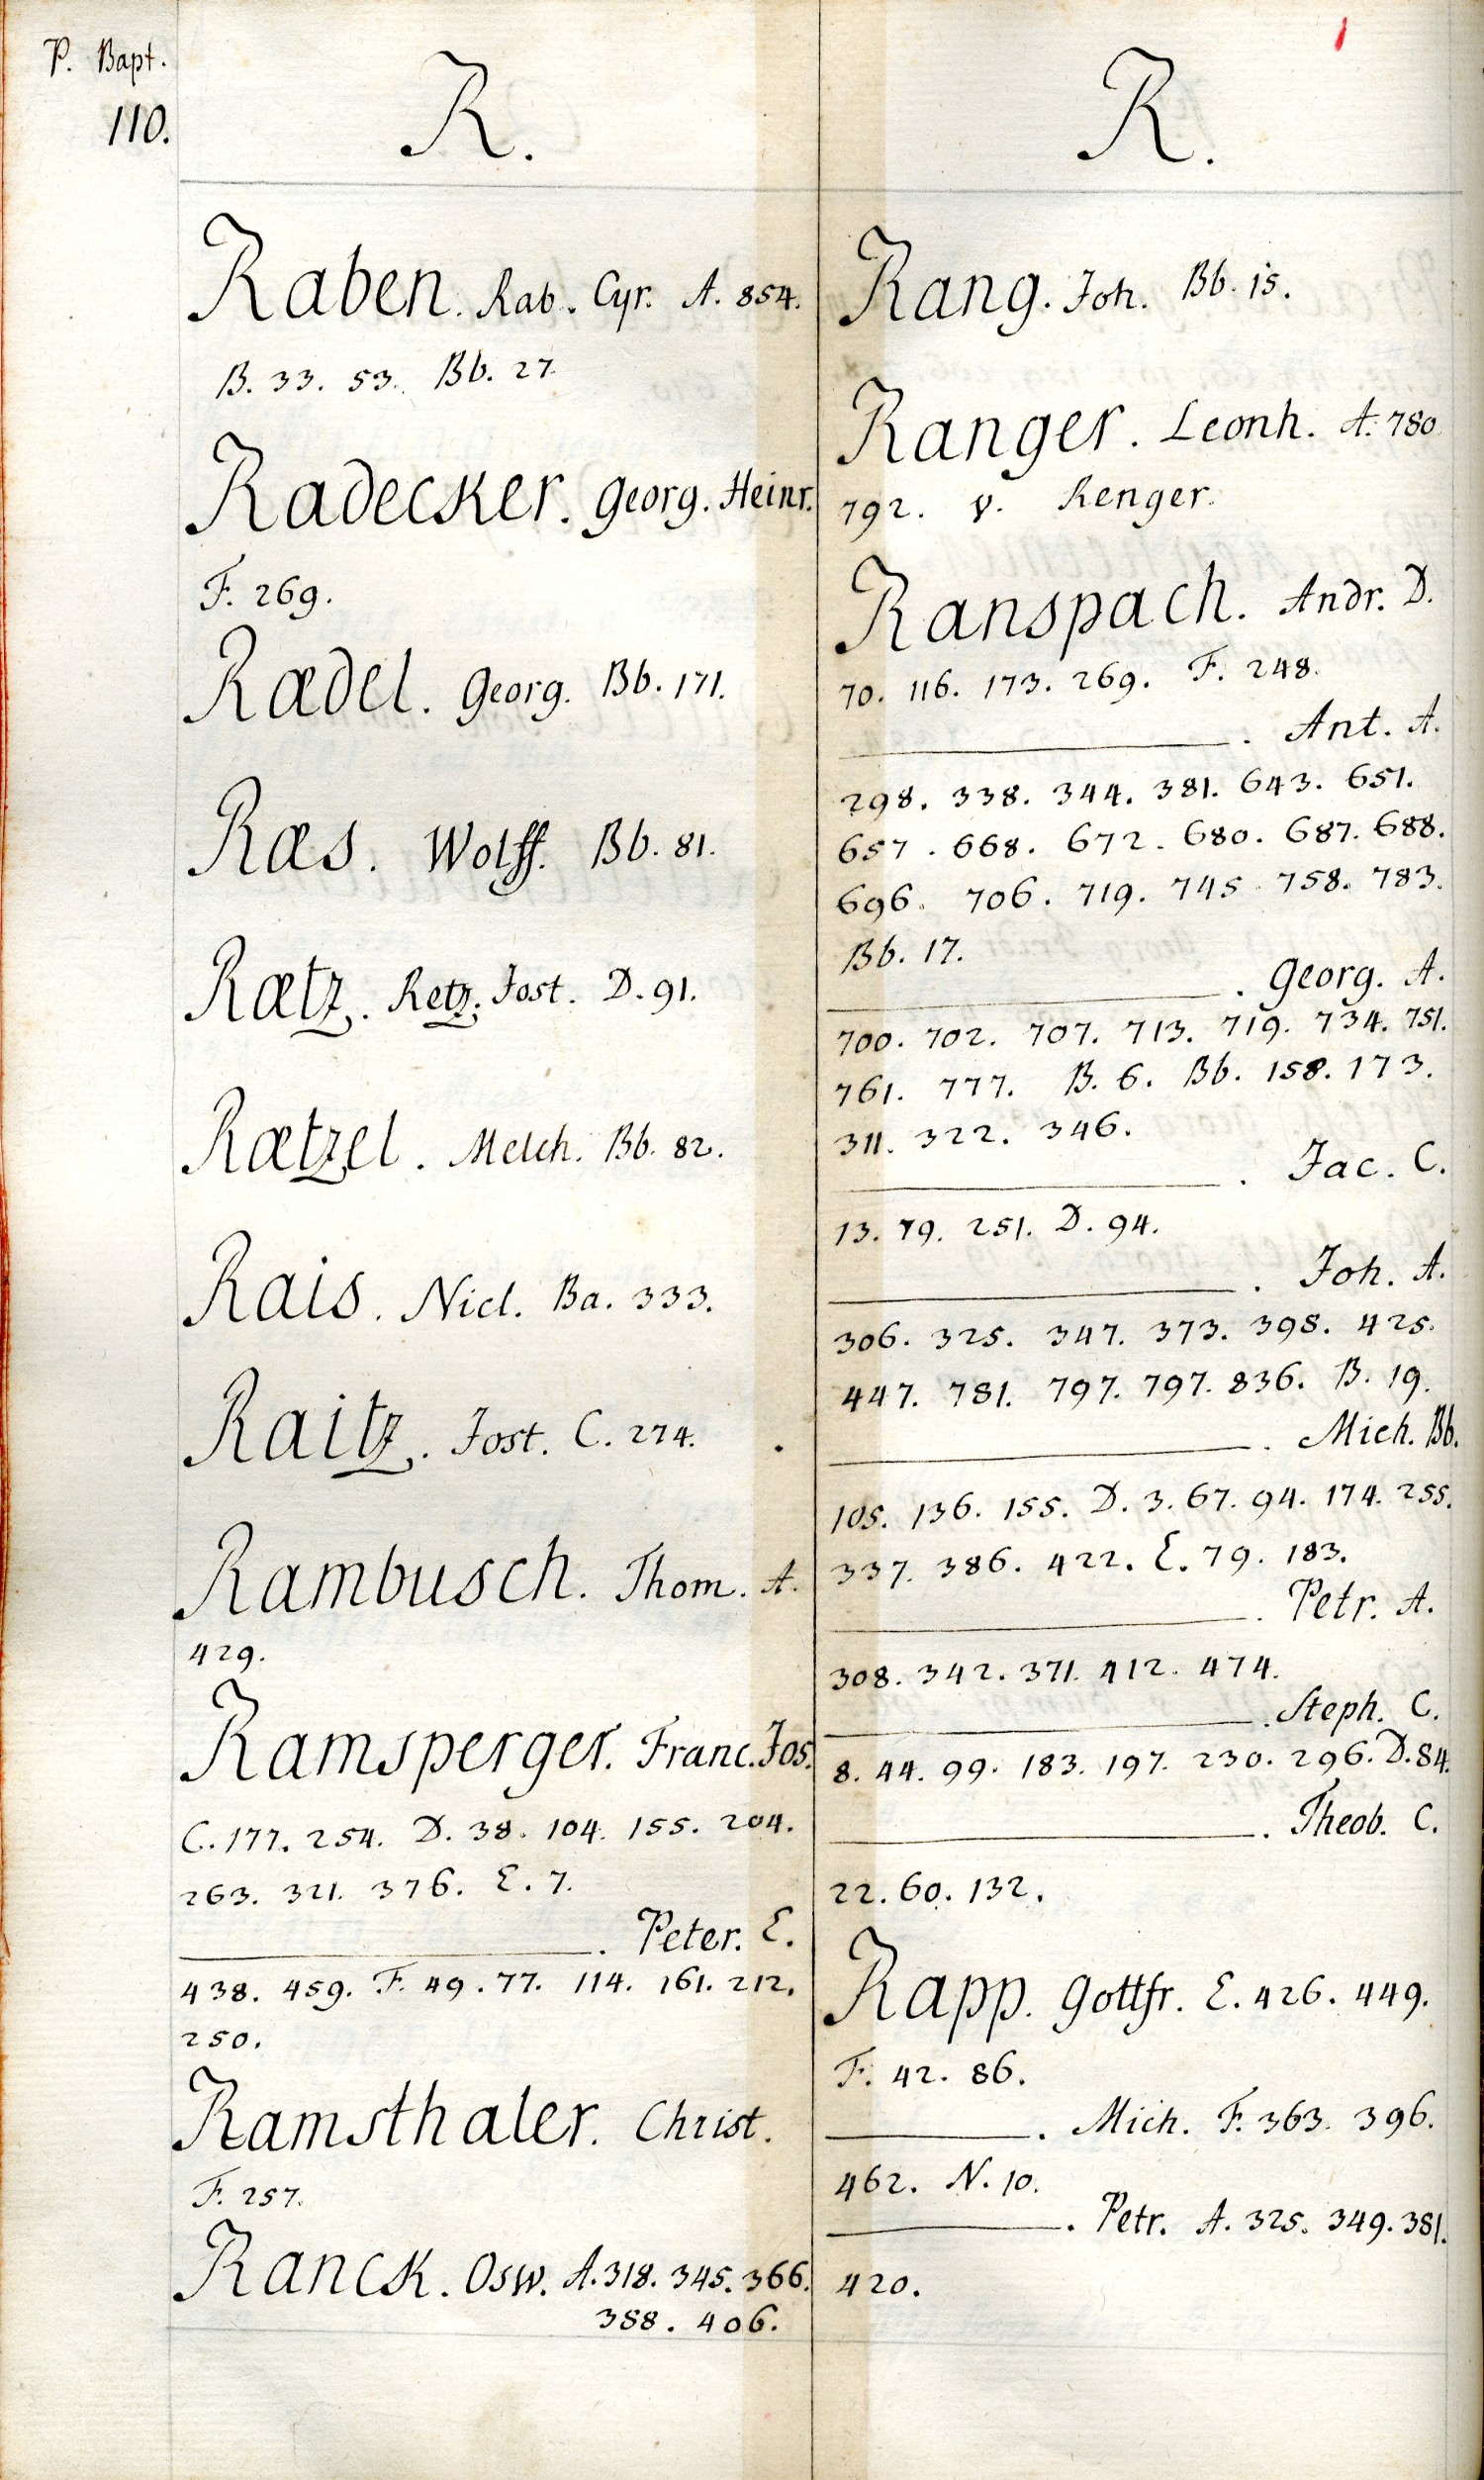 P. Bapt.
110.
R.
Raben. Rab. Cyr. A. 854.
B. 33. 53. Bb. 27.
Radecker. Georg. Heinr.
F. 269.
Rædel. Georg. Bb. 171.
Ræs. Wolff. Bb. 81.
Rætz. Retz. Jost. D. 91.
Rætzel. Melch. Bb. 82.
Rais. Nicl. Ba. 333.
Raitz. Jost. C. 274.
Rambusch. Thom. A.
429.
Ramsperger. Franc. Jos.
C. 177. 254. D. 38. 104. 155. 204.
263. 321. 376. E. 7.
———. Peter. E.
438. 459. F. 49. 77. 114. 161. 212.
250.
Ramsthaler. Christ.
F. 257.
Ranck. Osw. A. 318. 345. 366.
388. 406.
R.
Rang. Joh. Bb. 15.
Ranger. Leonh. A. 780
792. v. Renger.
Ranspach. Andr. D.
70. 116. 173. 269. F. 248.
———. Ant. A.
298. 338. 344. 381. 643. 651.
657. 668. 672. 680. 687. 688.
696. 706. 719. 745. 758. 783.
Bb. 17.
———. Georg. A.
700. 702. 707. 713. 719. 734. 751.
761. 777. B. 6. Bb. 158. 173.
311. 322. 346.
———. Jac. C.
13. 79. 251. D. 94.
———. Joh. A.
306. 325. 347. 373. 398. 425.
447. 781. 797. 797. 836. B. 19.
———. Mich. Bb.
105. 136. 155. D. 3. 67. 94. 174. 255.
337. 386. 422. E. 79. 183.
———. Petr. A.
308. 342. 371. 412. 474.
———. Steph. C.
8. 44. 99. 183. 197. 230. 296. D. 84.
———. Theob. C.
22. 60. 132.
Rapp. Gottfr. E. 426. 449.
F. 42. 86.
———. Mich. F. 363. 396.
462. N. 10.
———. Petr. A. 325. 349. 381.
420.